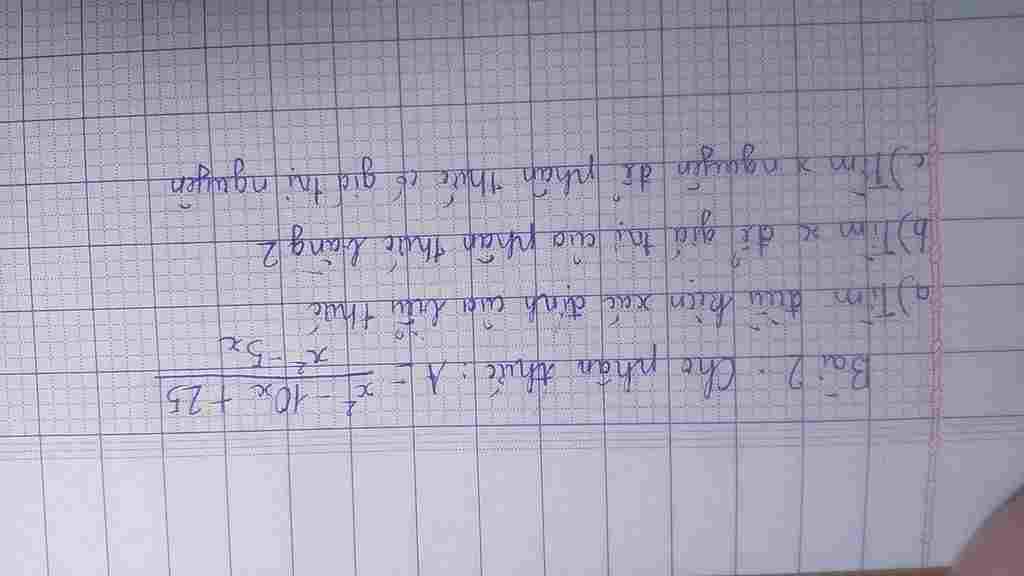 Bài 2: Cho phân thức: A = \frac{x² - 10x + 25}{x² - 5x}
a) Tìm điều kiện xác định của biểu thức
b) Tìm x để giá trị của phân thức bằng 2
c) Tìm x nguyên để phân thức có giá trị nguyên